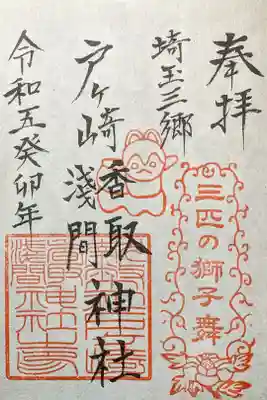 奉拝
埼玉三郷
三匹の獅子舞
戸ヶ崎香取浅間神社
令和五癸卯年